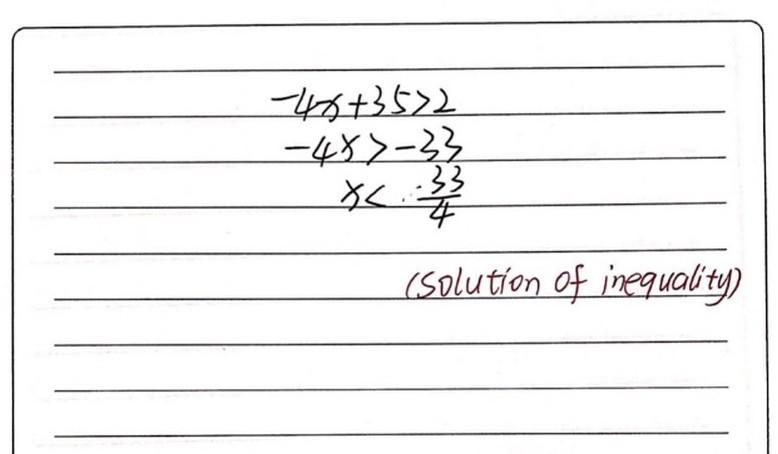 -4x+35>2
-4x>-33
x<33/4
(solution of inequality)